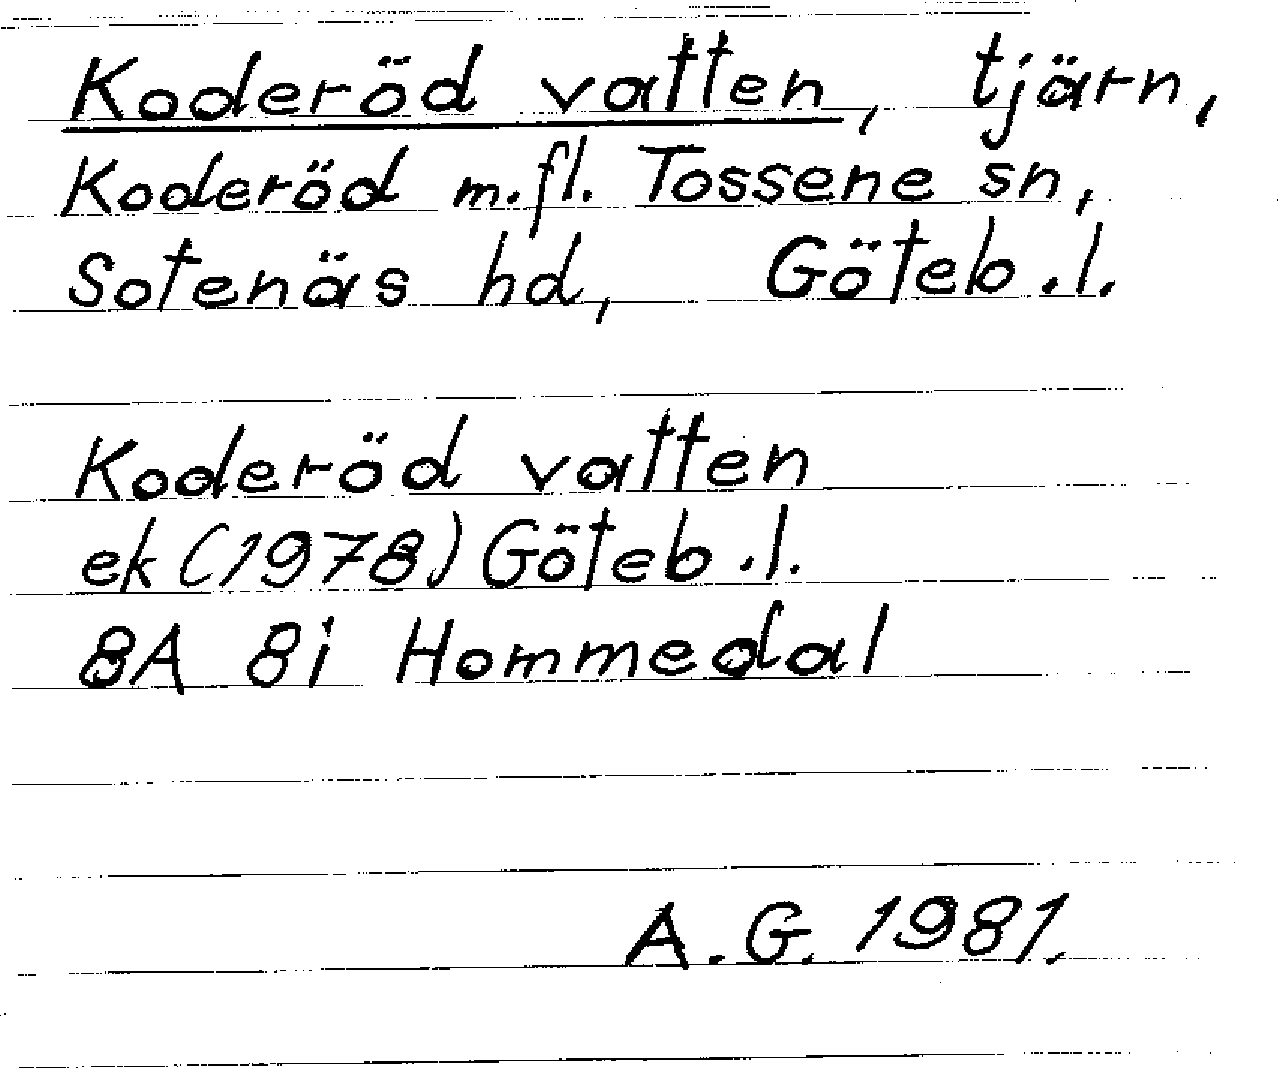 Koderöd vatten, tjärn,
Koderöd m.fl. Tossene sn,
Sotenäs hd, Göteb.l.
Koderöd vatten
ek (1978) Göteb.l.
8A 8i Hommedal
A.G. 1981.